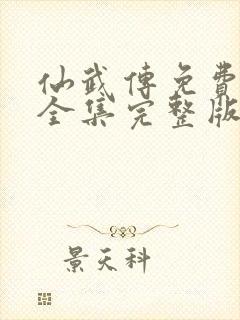 仙武傳免費
全集完整版
景天科